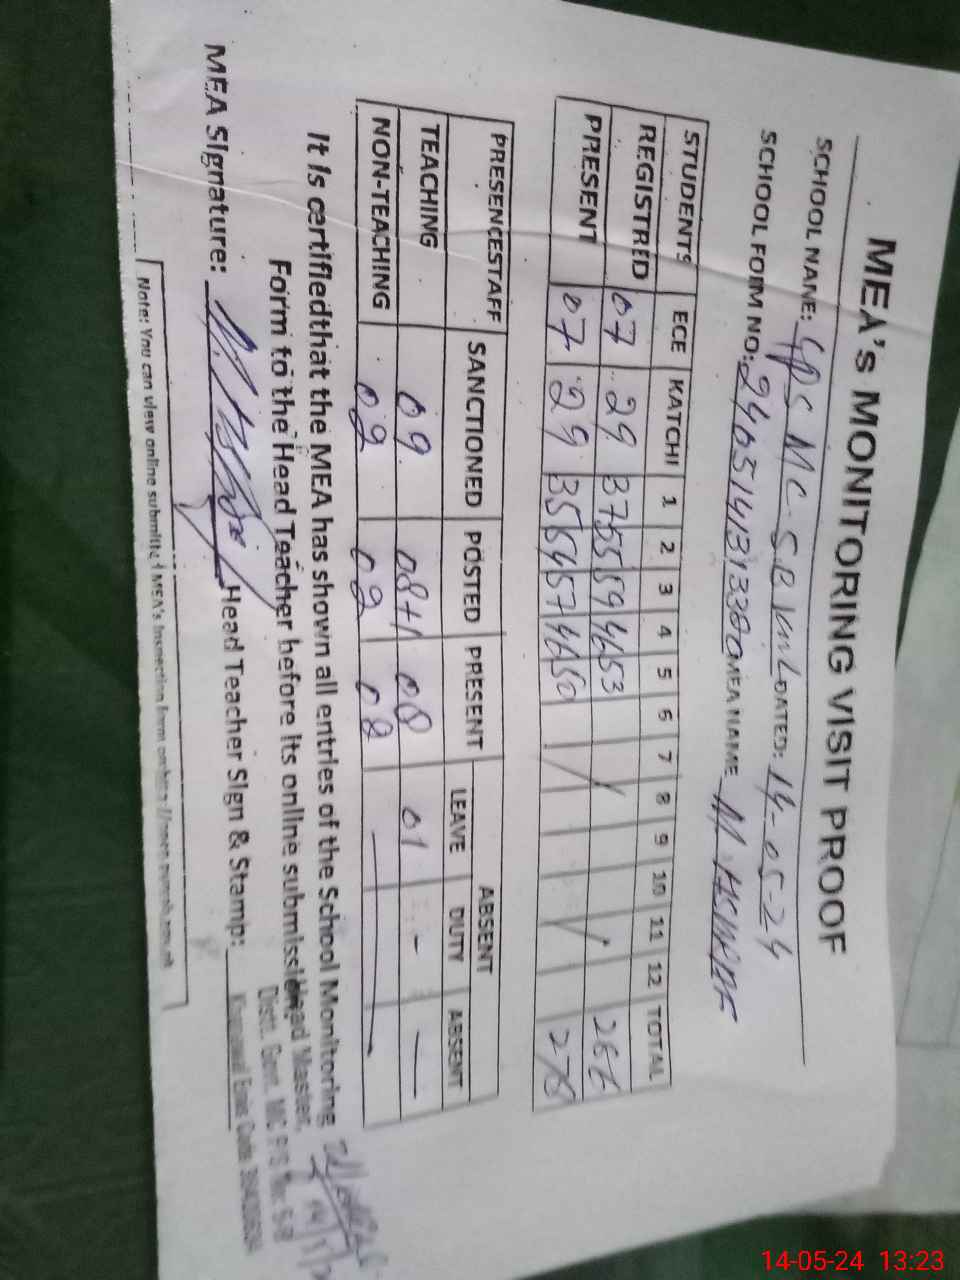 MEA's MONITORING VISIT PROOF
SCHOOL NANE: GPS MC-5.B DATED: 14-05-24
SCHOOL FORM NO: MEA NAME M.
STUDENTS ECE KATCHI 1 2 3 4 5 6 7 8 9 10 11 12 TOTAL
REGISTRED 07 29 37 55 59 46 53
PRESENT 07 29 35 54 57 46 50
PRESENCESTAFF SANCTIONED POSTED PRESENT ABSENT
LEAVE DUTY ABSENT
TEACHING 09 08+1 08 01 - —
NON-TEACHING 02 02 02
It Is certifiedthat the MEA has shown all entries of the School Monitoring
Form to the Head Teacher before its online submission.
MEA Signature: Head Teacher Sign & Stamp:
Head Master,
Distt. Govt. MC P/S
Khanewal Emis Code
Note: You can view online submitted MEA's Inspection form
14-05-24 13:23